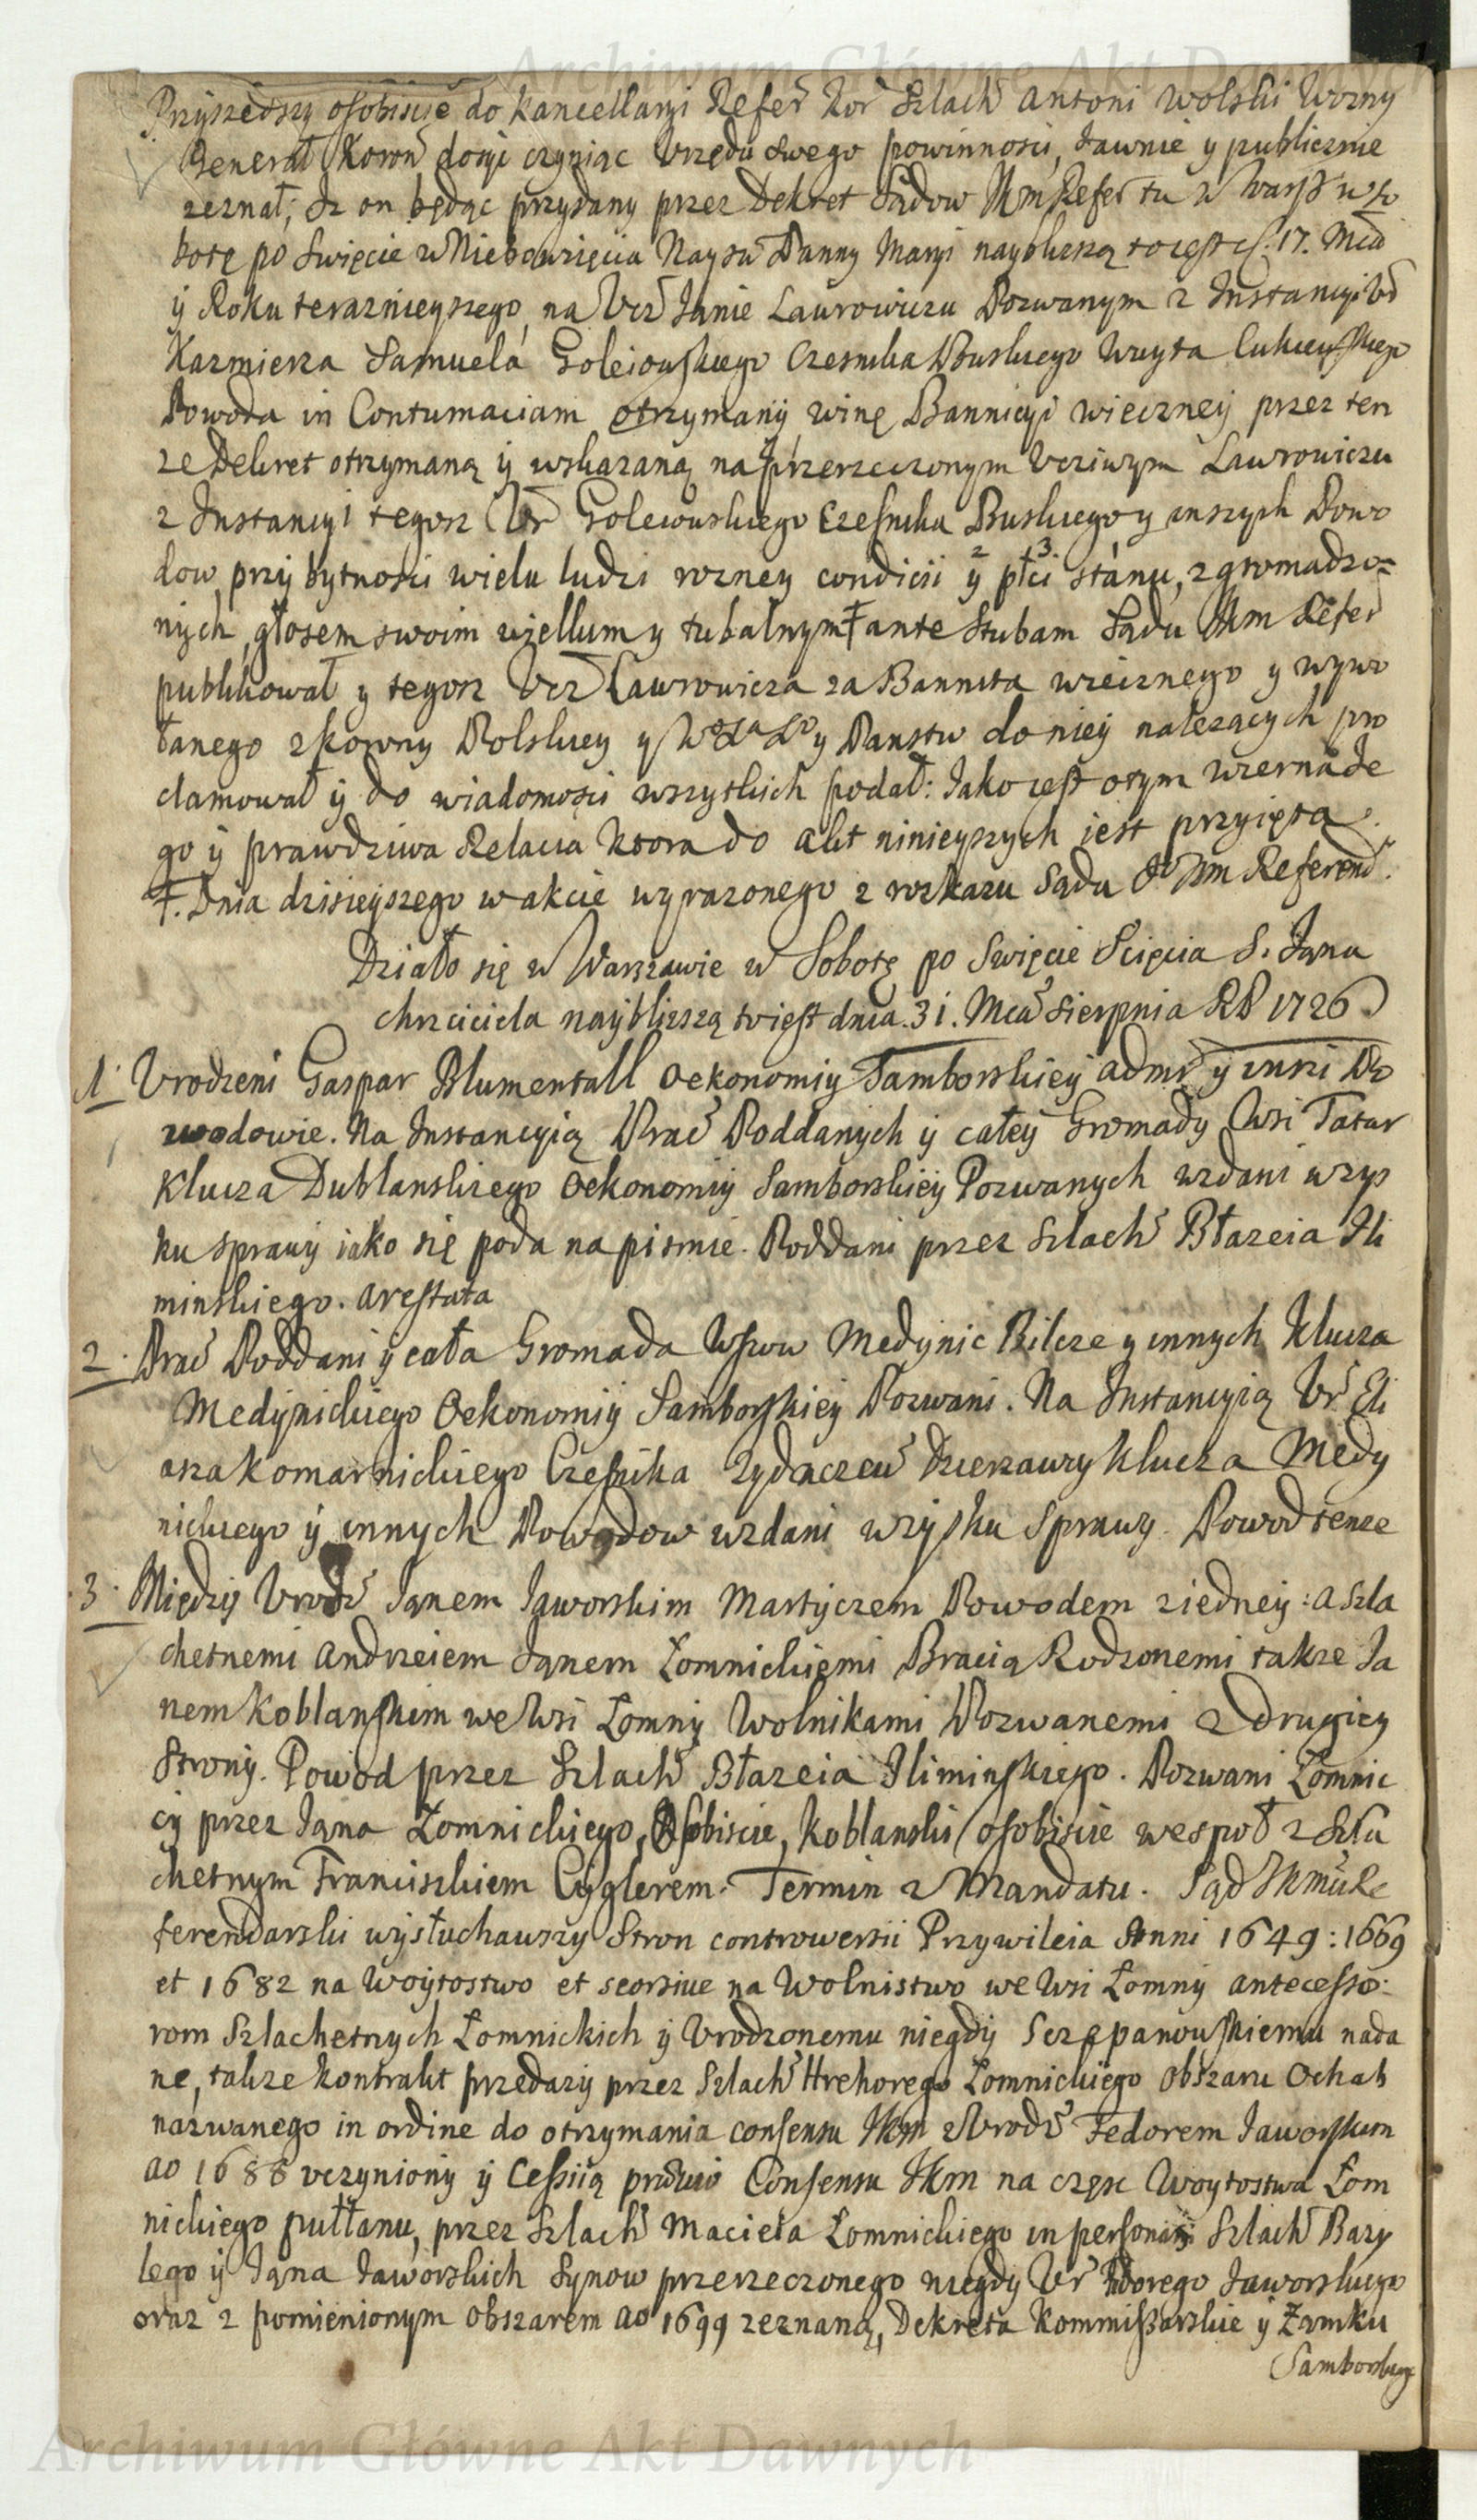 Archiwum Główne Akt Dawnych
Przyszedszy osobiscie do kancellaryi Refer Kor Szlach Antoni Wolski Wozny
Generał Koron dosyc czyniąc Vrzędu swego powinnosci, Jawnie y publicznie
zeznał, Iz on będąc przydany przez Dekret Sądow JKm Refer tu w Warsz w So
botę po Swięcie w Niebowzięcia Naysw Panny Maryi naybliszą to iest d. 17. Mca
ÿ Roku teraznieyszego, na Vcz Janie Laurowiczu Pozwanym z Instancyi Vr
Kazmierza Samuela Goleiowskiego Czesnika Buskiego Woyta
Powoda in Contumaciam otrzymanÿ winę Bannicyi wieczneÿ przez ten
ze Dekret otrzymaną ÿ wskazaną na przerzeczonym Vcziwym Lawrowiczu
z Instancyi tegosz Vr Golewuskiego Czesnika Buskiego y inszych Powo
dow, przÿ bytnosci wielu ludzi rozney condicii 2 ÿ płci 3. stanu, zgromadzo=
nÿch, głosem swoim y tubalnym ‡ ante Stubam Sądu JKm Refer
publikował y tegosz Vcz Lawrowicza za Bannita wiecznego y wywo
łanego z korony Polskiey y WoXaLo y Panstw do nieÿ nalezących pro
clamował ÿ do wiadomosci wszytkich podał: Jako iest otym wierna Je
go ÿ prawdziwa Relacia ktora do akt ninieyszych iest przyięta.
‡. Dnia dzisieyszego w akcie wyrazonego z rozkazu Sądu JKm Referend.
Działo się w Warszawie w Sobotę po Swięcie Scięcia S. Jąna
chrzciciela nayblizszą to iest dnia. 31. Mca Sierpnia RP 1726
1. Vrodzeni Gaspar Blumentall Oekonomiy Samborskieÿ admr ÿ inszi Po
wodowie. Na Instancyią Prac Poddanych ÿ całeÿ Gromady Wsi Tatar
Klucza Dublanskiego Oekonomiÿ Samborskieÿ Pozwanych wzdani wzys
ku sprawÿ iako się poda na pismie. Poddani przez Szlach Błazeia Ili
minskiego. arestata
2. Prac Poddani ÿ cała Gromada Wsiow Medynic Bilcze y innych Klucza
Medÿnickiego Oekonomiÿ Samborskieÿ Pozwani. Na Instancyią Vr Eli
asza Komarnickiego Czesnika Zydaczew Dzierzawcy klucza Medy
nickiego ÿ innych Powodow wzdani wzysku Sprawy. Powod tenze
3. Międzÿ Vrodz Jąnem Jaworskim Martÿczem Powodem ziedneÿ: a Szla
chetnemi Andrzeiem Jąnem Łomnickiemi Bracią Rodzonemi takze Ja
nem Koblanskim we Wsi Łomnÿ Wolnikami Pozwanemi z drugiey
Stronÿ. Powod przez Szlach Błazeia Iliminskiego. Pozwani Łomnic
cÿ przez Jąna Łomnickiego, Osobiscie, Koblanski osobiscie wespoł z Szla
chetnym Franciszkiem Cÿglerem. Termin z Mandatu. Sąd JKmci Re
ferendarski wysłuchawszy Stron controwersii Przywileia Anni 1649: 1669
et 1682 na Woytostwo et seorsiue na Wolnistwo we Wsi Łomnÿ antecesso:
rom Szlachetnych Łomnickich ÿ Vrodzonemu niegdÿ Szczepanowskiemu nada
ne, takze kontrakt przedazÿ przez Szlach Hrehorego Łomnickiego obszaru Ochab
nazwanego in ordine do otrzymania consensu JKm z Vrodz Fedorem Jaworskim
ao 1688 vczyniony ÿ Cessiią Consensu JKm na częsc Woytostwa Łom
nickiego pułłanu, przez Szlach Macieia Łomnickiego in personas Szlach Bazy
lego ÿ Jąna Jaworskich Synow przerzeczonego niegdy Vr Jaworskiego
oraz z pomienionym obszarem ao 1699 zeznaną, Dekreta Kommissarskie ÿ Zamku
Samborskiego
Archiwum Główne Akt Dawnych